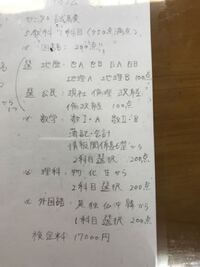 センター試験
5教科7科目(950点満点)
国語 200点
選 地歴 世A 世B 日A 日B
地理A 地理B 100点
選 公民 現社 倫理 政経
倫政経 100点
数学 数Ⅰ・A 数Ⅱ・B
簿記・会計
情報関係基礎から
2科目選択 200点
理科 物 化 生 から
2科目選択 200点
外国語 英 独 仏 中 韓から
1科目選択 200点
検定料 17000円